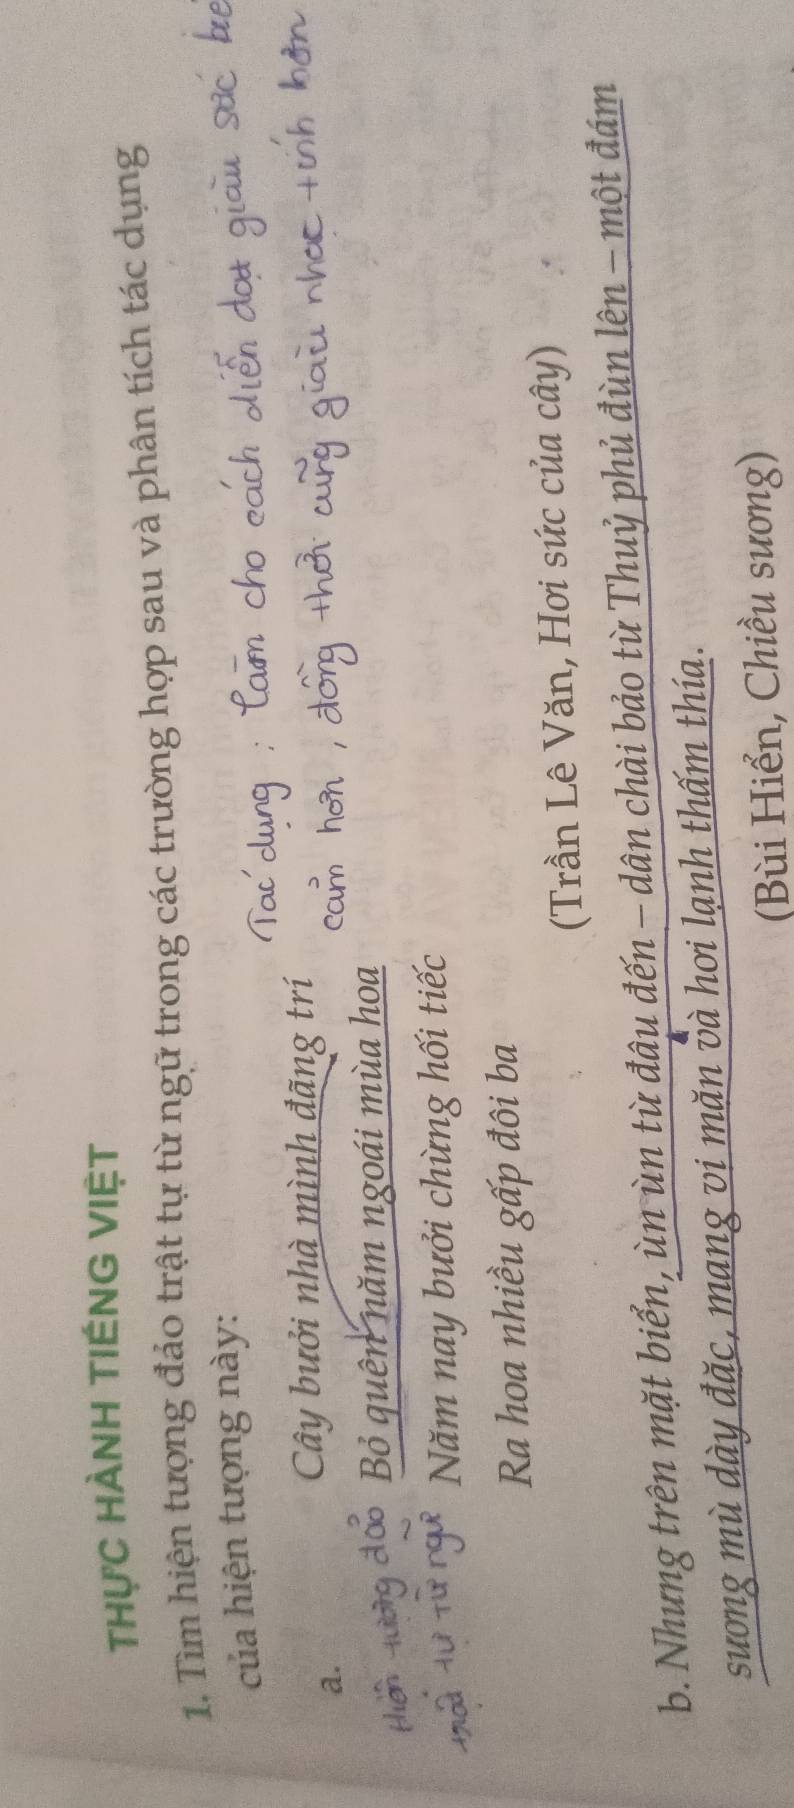 THỰC HÀNH TIẾNG VIỆT
1. Tìm hiện tượng đảo trật tự từ ngữ trong các trường hợp sau và phân tích tác dụng
của hiện tượng này:
Tác dụng: Làm cho cách diễn đạt giàu sắc
cảm hơn, đồng thời cũng giàu nhạc tính hơn
a.
Cây bưởi nhà mình đãng trí
Bỏ quên năm ngoái mùa hoa
Năm nay bưởi chừng hối tiếc
Ra hoa nhiều gấp đôi ba
Hiện tượng đảo
trật tự từ ngữ
(Trần Lê Văn, Hơi sức của cây)
b. Nhưng trên mặt biển, ùn ùn từ đâu đến – dân chài bảo từ Thuỷ phủ đùn lên – một đám
sương mù dày đặc, mang vị mặn và hơi lạnh thấm thía.
(Bùi Hiển, Chiều sương)